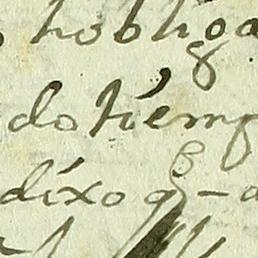 hobliga
do tiemp
dixo q - a